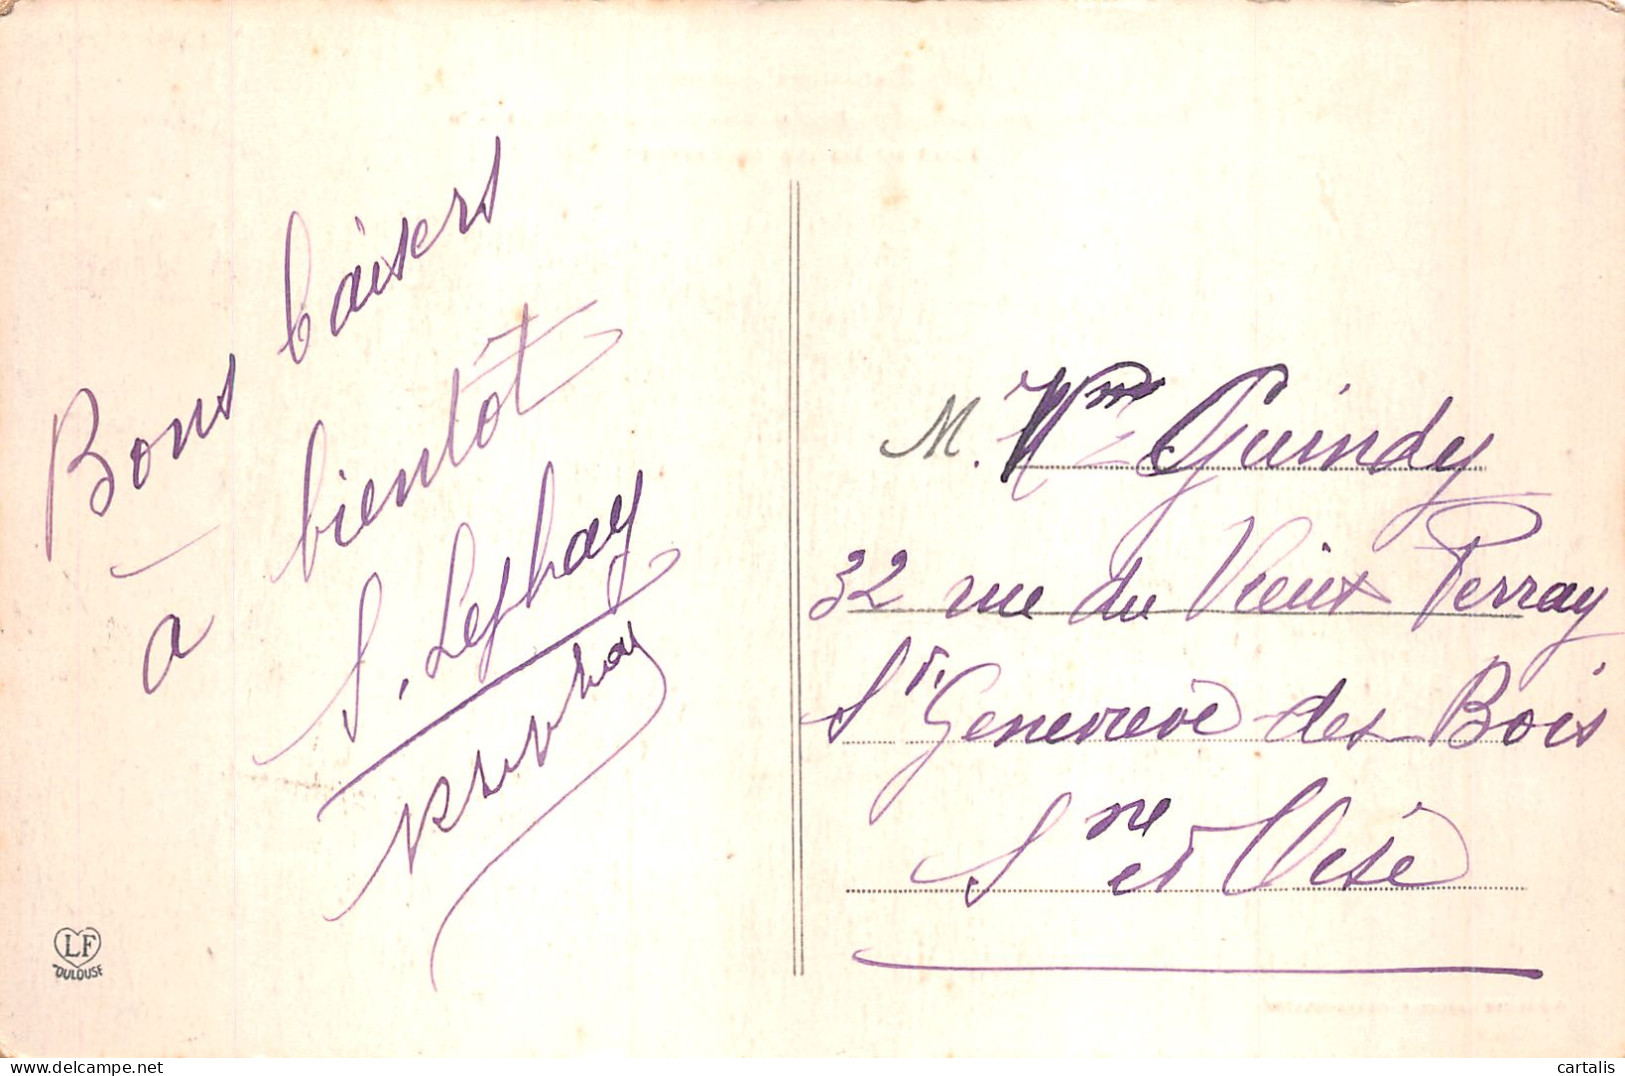 Bons baisers
a bientôt
S. Lephay
M. Mme Guindey
32 rue du Vieux Perray
St. Genevieve des Bois
Sne et Oise
LF
TOULOUSE
delcampe.net
cartalis